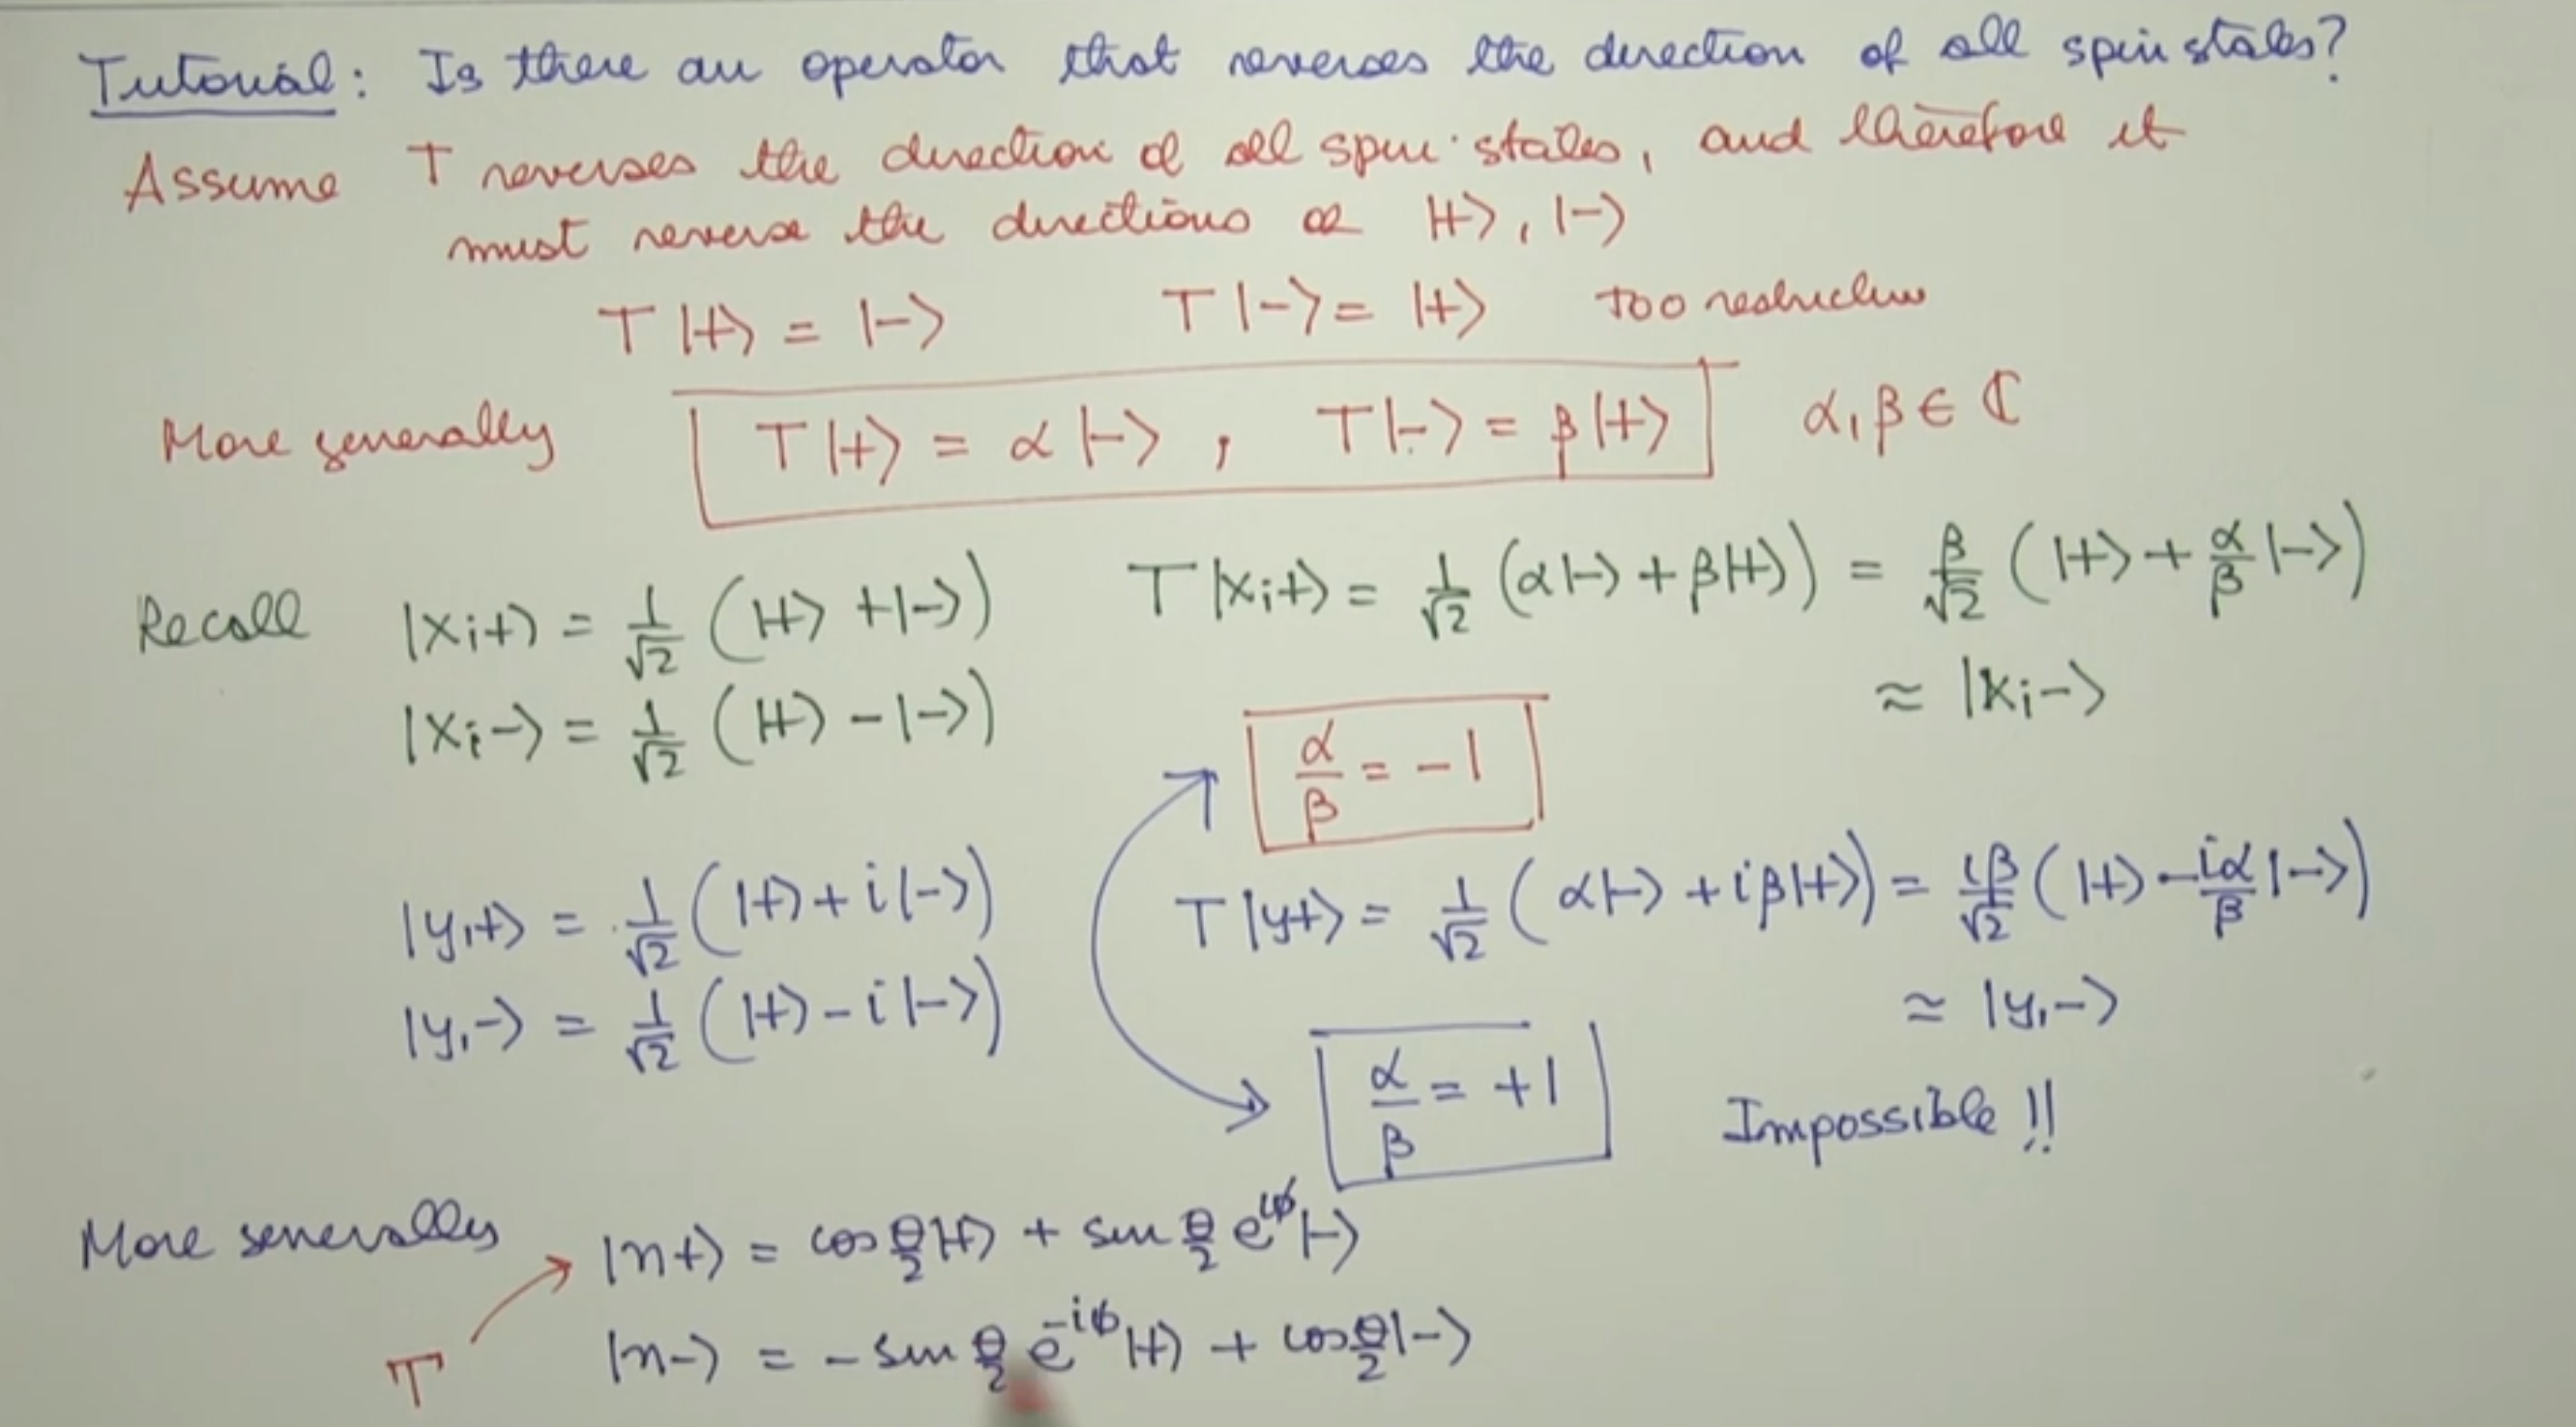 Tutorial: Is there an operator that reverses the direction of all spin states?
Assume T reverses the direction of all spin states, and therefore it
must reverse the directions of |+⟩, |-⟩
T|+⟩ = |-⟩    T|-⟩ = |+⟩    too restrictive
More generally    T|+⟩ = α|-⟩ , T|-⟩ = β|+⟩    α, β ∈ ℂ
Recall    |x;+⟩ = 1/√2 (|+⟩ + |-⟩)    T|x;+⟩ = 1/√2 (α|-⟩ + β|+⟩) = β/√2 (|+⟩ + α/β |-⟩)
|x;-⟩ = 1/√2 (|+⟩ - |-⟩)    ≈ |x;-⟩
α/β = -1
|y,+⟩ = 1/√2 (|+⟩ + i|-⟩)    T|y+⟩ = 1/√2 (α|-⟩ + iβ|+⟩) = iβ/√2 (|+⟩ - iα/β |-⟩)
|y,-⟩ = 1/√2 (|+⟩ - i|-⟩)    ≈ |y,-⟩
α/β = +1    Impossible !!
More generally    |n+⟩ = cos θ/2 |+⟩ + sin θ/2 e^{iφ} |-⟩
T    |n-⟩ = - sin θ/2 e^{-iφ} |+⟩ + cos θ/2 |-⟩